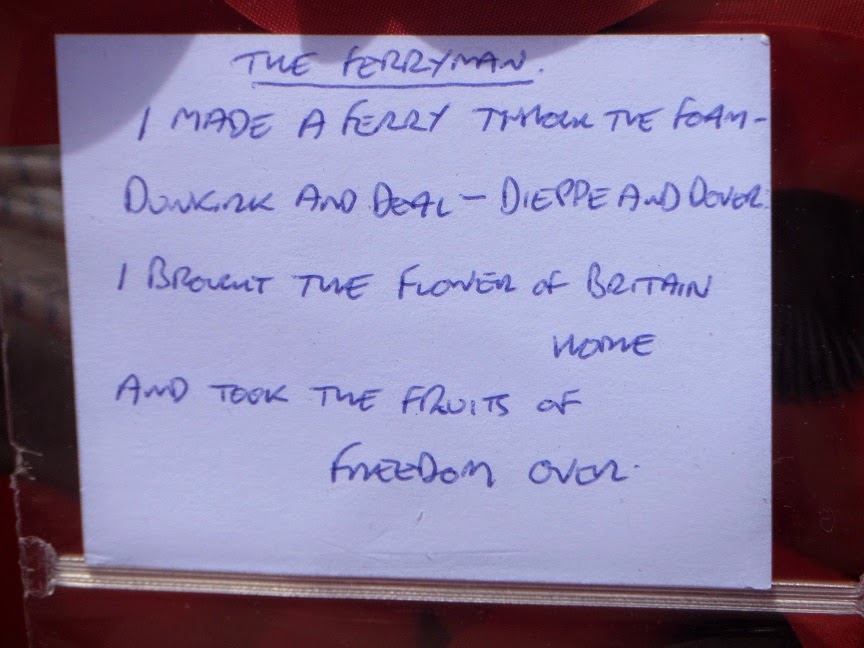 THE FERRYMAN.
I MADE A FERRY THROUGH THE FOAM -
DUNKIRK AND DEAL - DIEPPE AND DOVER:
I BROUGHT THE FLOWER OF BRITAIN
HOME
AND TOOK THE FRUITS OF
FREEDOM OVER.